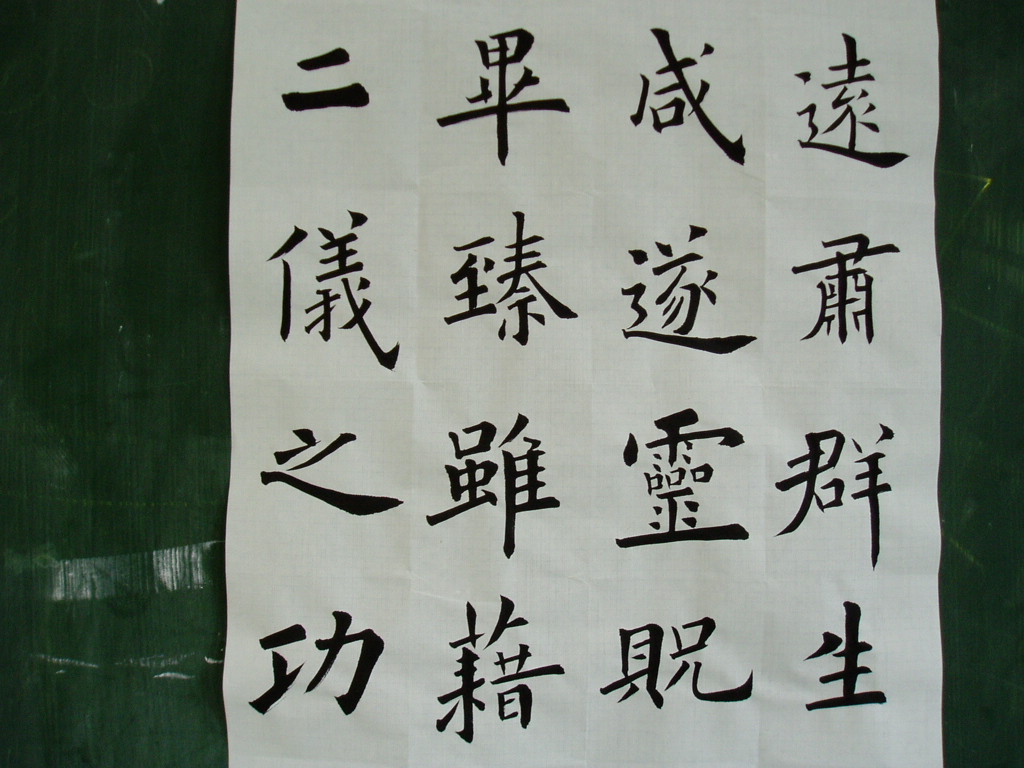 遠肅群生
咸遂靈貺
畢臻雖藉
二儀之功